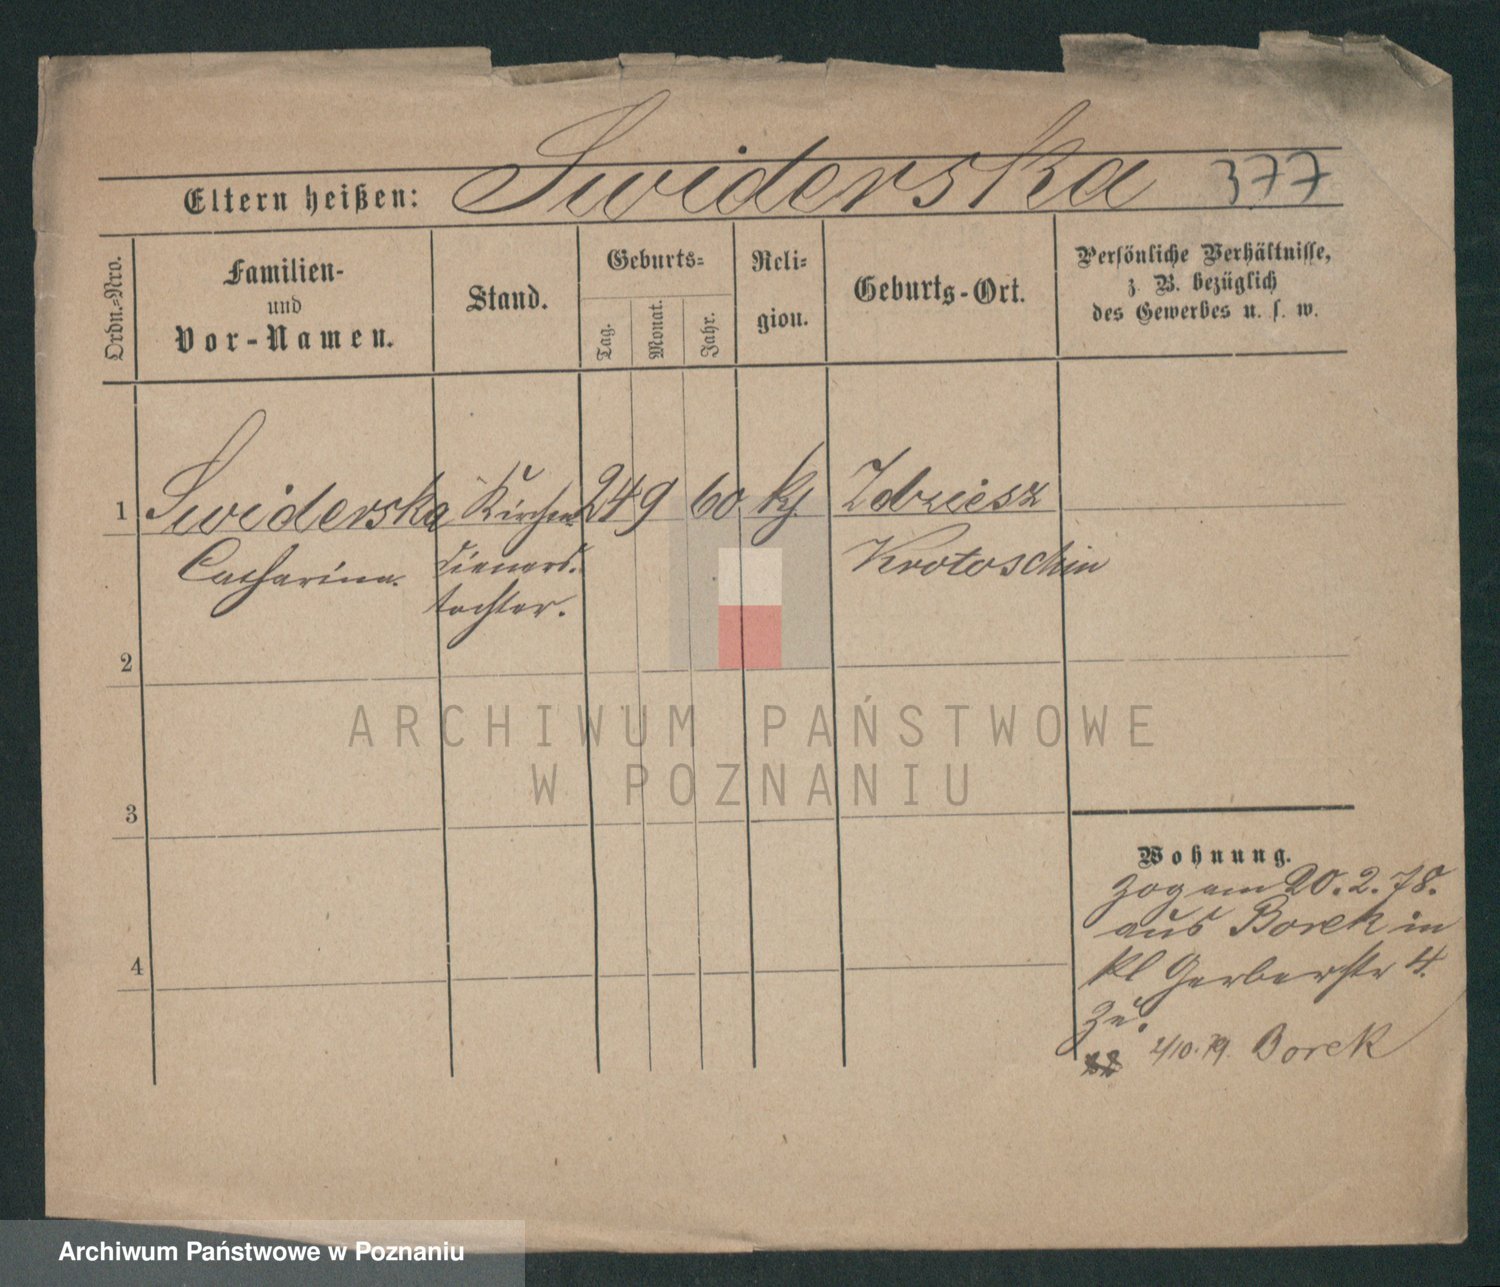 Swiderska 377
Eltern heißen:
Ordn.-Nro.
Familien-
und
Vor-Namen.
Stand.
Geburts-
Tag.
Monat.
Jahr.
Reli-
gion.
Geburts-Ort.
Persönliche Verhältnisse,
z. B. bezüglich
des Gewerbes u. s. w.
1 Swiderska Kirchen 24 9 60 k Zdziesz
Catharina. dieners-
tochter.
Krotoschin
2
3
4
ARCHIWUM PAŃSTWOWE
W POZNANIU
Wohnung.
zog am 20.2.78.
aus Borek in
kl Gerberstr 4.
zu.
2/10.79. Borek
Archiwum Państwowe w Poznaniu